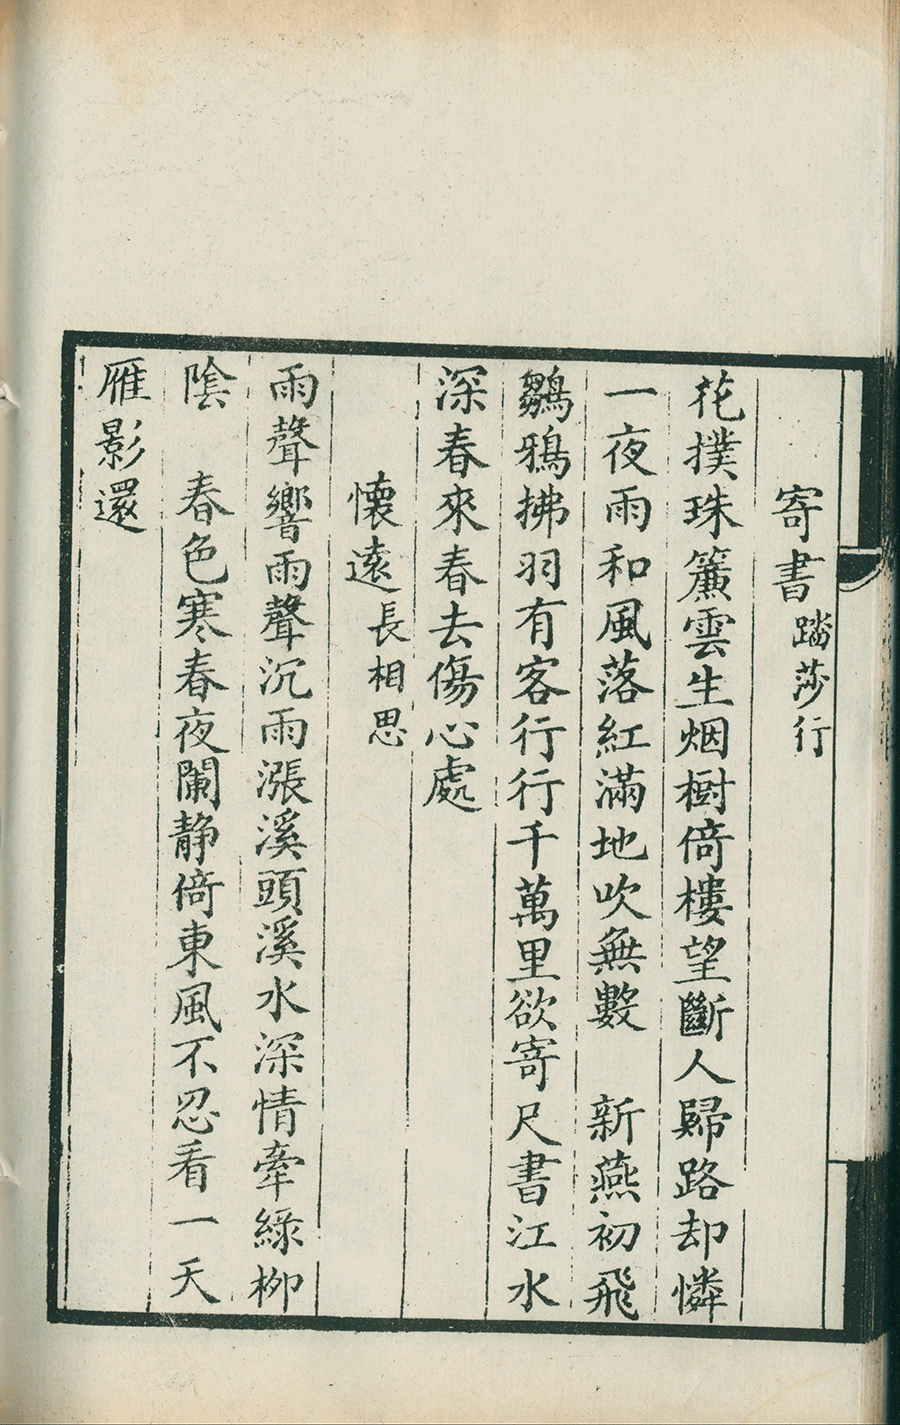 寄書踏莎行
花撲珠簾雲生烟樹倚樓望斷人歸路却憐
一夜雨和風落紅滿地吹無數　新燕初飛
鶵鴉拂羽有客行行千萬里欲寄尺書江水
深春來春去傷心處
懷遠長相思
雨聲響雨聲沉雨漲溪頭溪水深情牽綠柳
陰　春色寒春夜闌静倚東風不忍看一天
雁影還